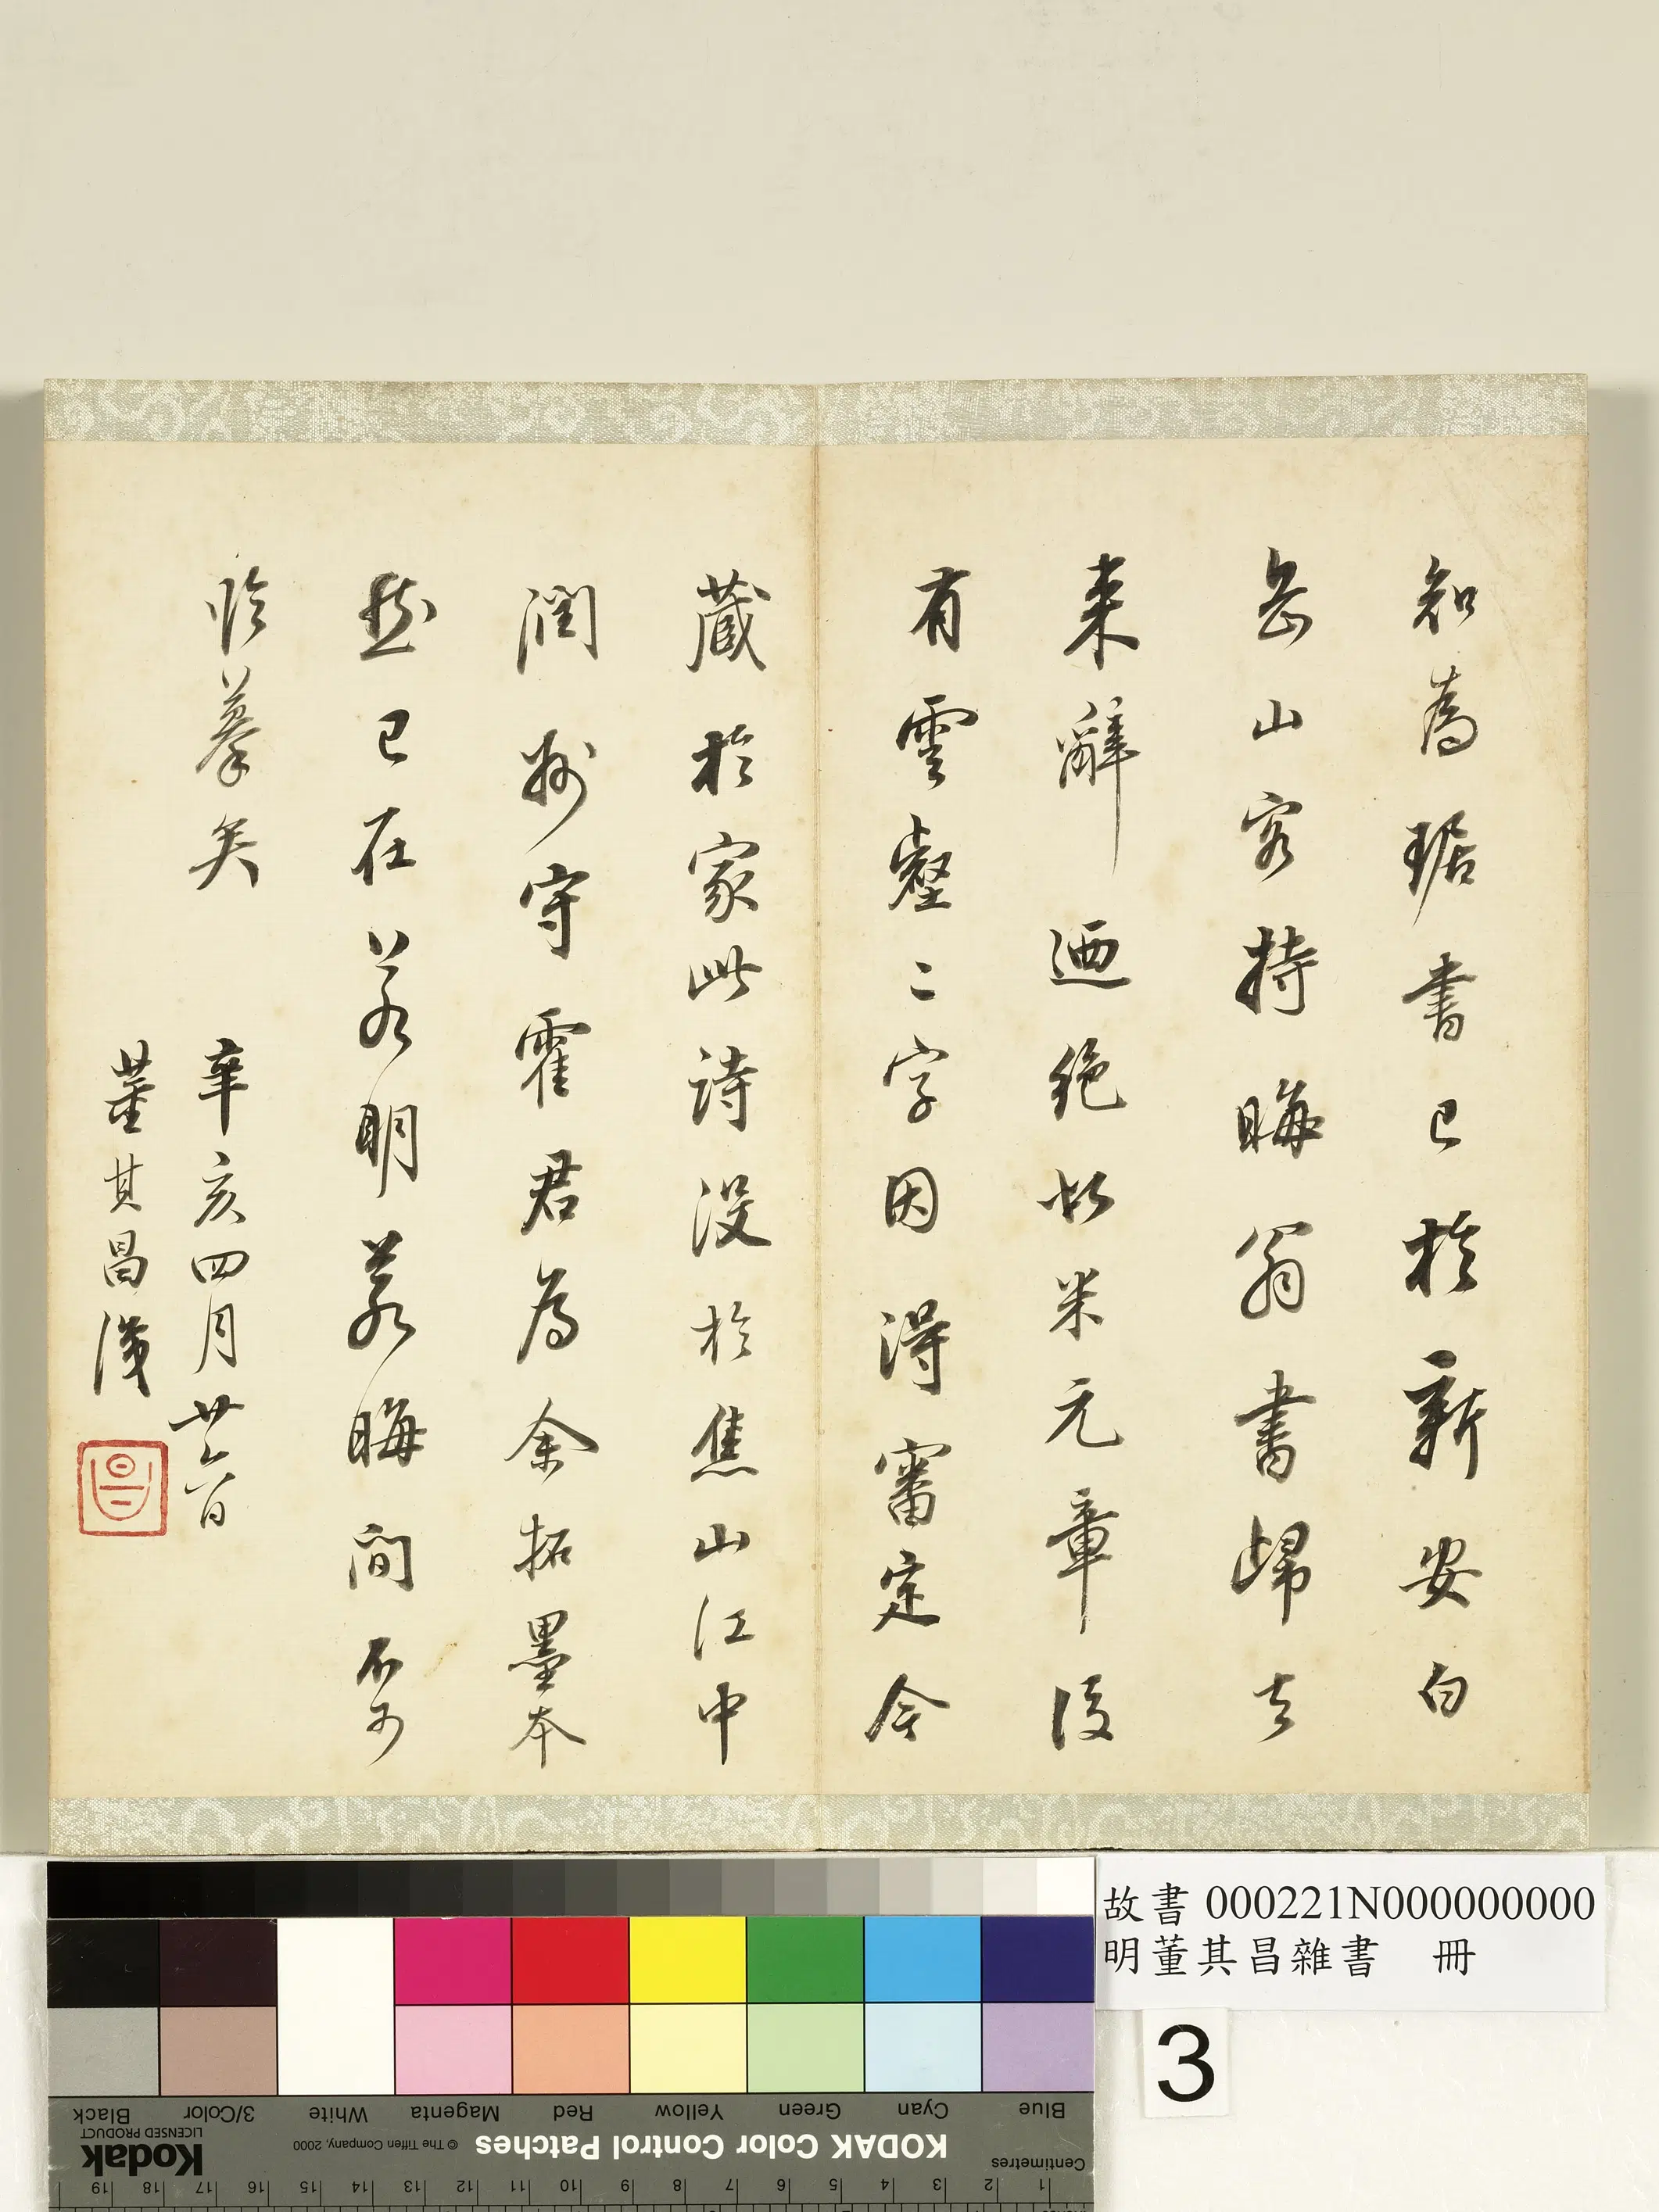 知為琚書已於新安白
岳山客持晦翁書歸去
来辭迺絕似米元章後
有雲壑二字因得審定今
藏於家此詩没於焦山江中
潤州守霍君為余拓墨本
然已在若明若晦間不可
臨摹矣 辛亥四月廿六日
董其昌識
昌
故書 000221N000000000
明董其昌雜書 冊
3
Blue Cyan Green Yellow Red Magenta White 3/Color Black
Centimetres KODAK Color Control Patches © The Tiffen Company, 2000 Kodak
LICENSED PRODUCT
1 2 3 4 5 6 7 8 9 10 11 12 13 14 15 16 17 18 19